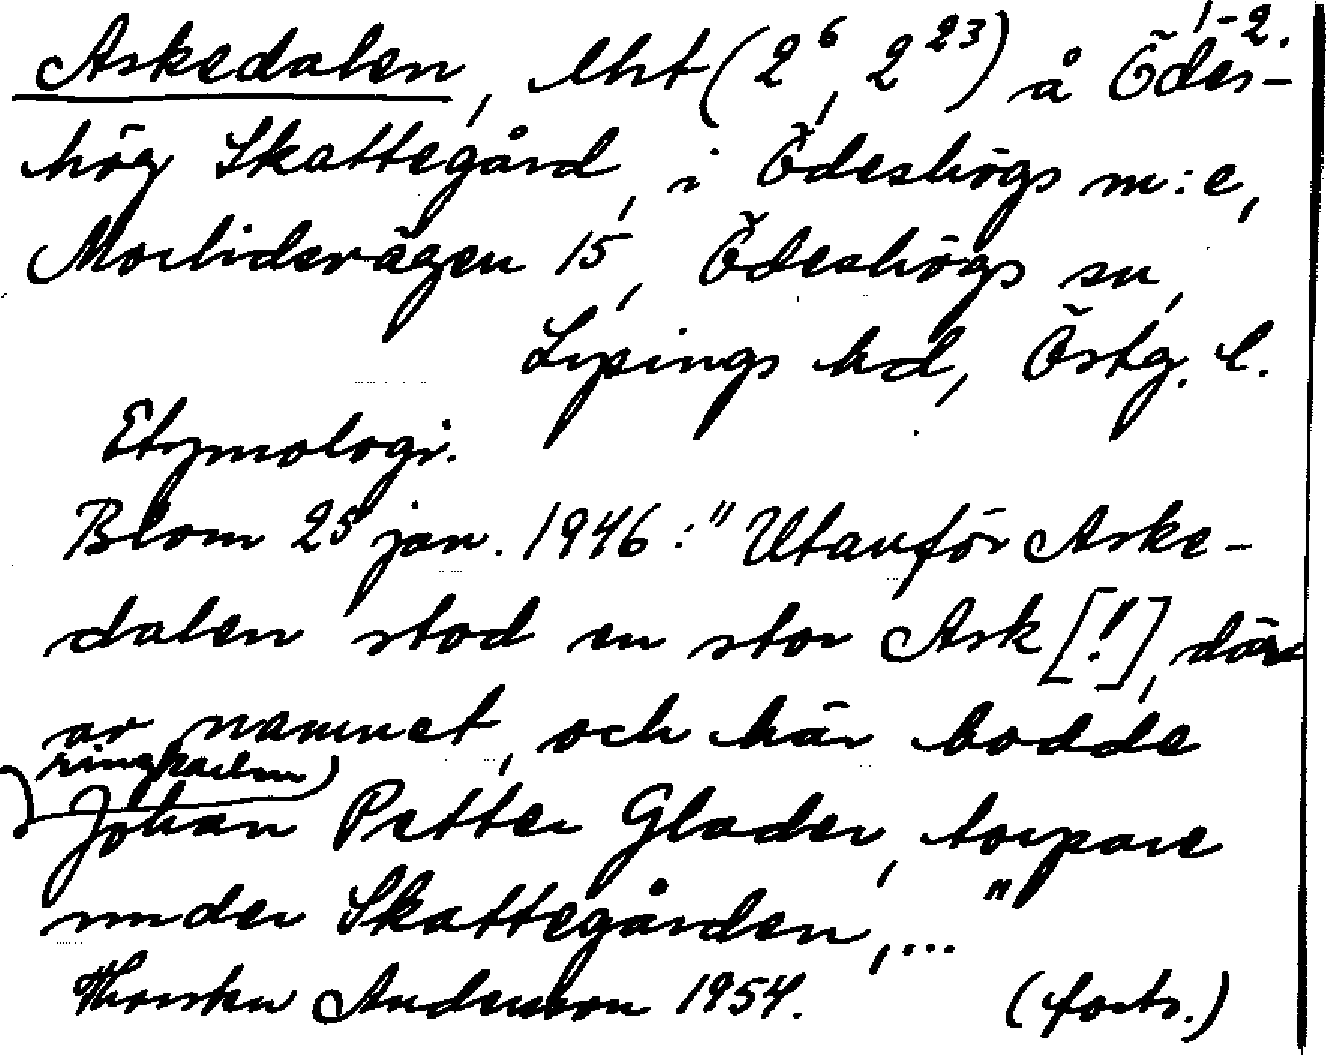 1-2.
Askedalen, lht (2⁶, 2²³) å Ödes-
hög Skattegård, i Ödeshögs m:e,
Mörlidevägen 15, Ödeshögs sn,
Lysings hd, Östg. l.
Etymologi.
Blom 25 jan. 1946: "Utanför Aske-
dalen stod en stor Ask [!], där
av namnet, och här bodde
ringkarlen)
Johan Petter Glader, torpare
under Skattegården, ..."
Thorsten Andersson 1954. (forts.)